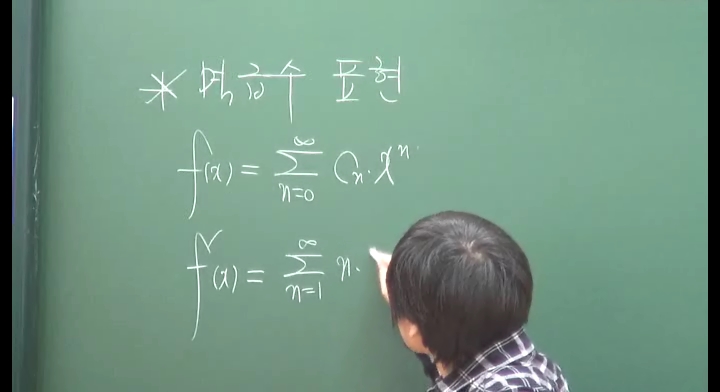 * 멱급수 표현
f(x) = ∑_{n=0}^{∞} Cₙ·xⁿ.
f'(x) = ∑_{n=1}^{∞} n·